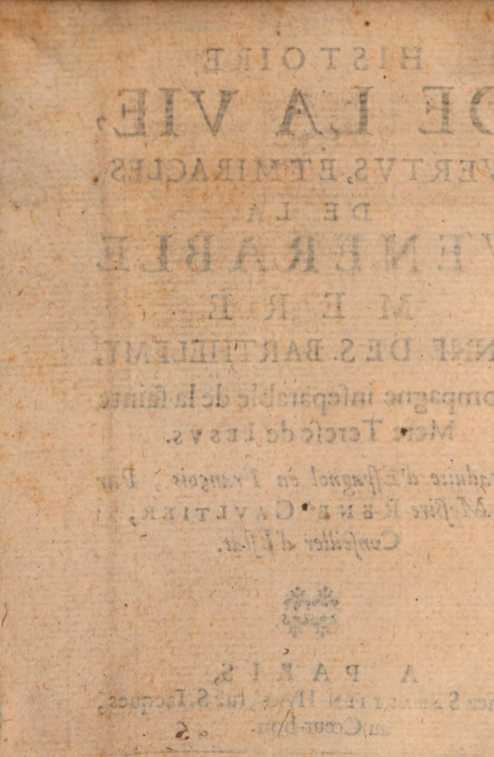 HISTOIRE
DE LA VIE,
VERTVS, ET MIRACLES,
DE LA
VENERABLE
MERE
NNE DE S. BARTHELEMY,
ompagne inseparable de la sainte
Mere Terese de IESVS.
aduite d'Espagnol en François, Par
Messire RENE GAVLTIER,
Conseiller d'Estat.
A PARIS,
hez SEBASTIEN HVRE, ruë S. Iacques,
au Cœur-bon.